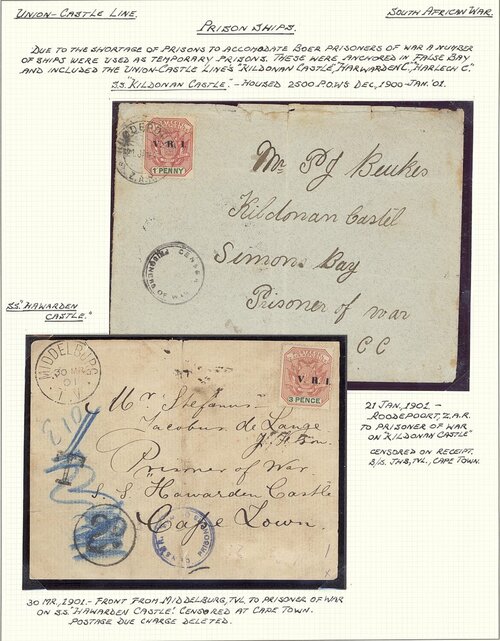 UNION-CASTLE LINE.
SOUTH AFRICAN WAR.
PRISON SHIPS.
DUE TO THE SHORTAGE OF PRISONS TO ACCOMODATE BOER PRISONERS OF WAR A NUMBER
OF SHIPS WERE USED AS TEMPORARY PRISONS. THESE WERE ANCHORED IN FALSE BAY
AND INCLUDED THE UNION-CASTLE LINE'S "KILDONAN CASTLE", "HARWARDEN C", "HARLECH C".
S.S. "KILDONAN CASTLE." - HOUSED 2500 P.O.WS DEC, 1900-JAN. '01.
Z.A.R.
V. R. I.
1 PENNY
Mr PJ Beukes
Kildonan Castel
Simons Bay
Prisoner of war
C C
CENSOR
PRISONER OF WAR
S.S. "HAWARDEN
CASTLE."
MIDDELBURG
30 MR
01
V. R. I.
3 PENCE
Mr Stefanus
Jacobus de Lange
Prisoner of War
S. S. Hawarden Castle
Cape Town.
CENSOR
PRISONER
21 JAN, 1901 -
ROODEPOORT, Z.A.R.
TO PRISONER OF WAR
ON KILDONAN CASTLE"
CENSORED ON RECEIPT.
B/S. JHB, TVL., CAPE TOWN.
30 MR, 1901. - FRONT FROM MIDDELBURG, TVL TO PRISONER OF WAR
ON S.S. "HAWARDEN CASTLE". CENSORED AT CAPE TOWN.
POSTAGE DUE CHARGE DELETED.